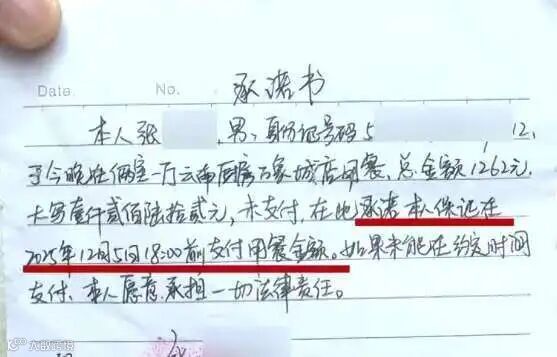 承诺书
Date.    No.
本人张 男,身份证号码5 12,
于今晚在俩室一厅云南厨房万象城店用餐,总金额1262元.
大写壹仟贰佰陆拾贰元,未支付,在此承诺本人保证在
2025年12月5日18:00前支付用餐金额。如果未能在约定时间
支付,本人愿意承担一切法律责任。
大皖新闻